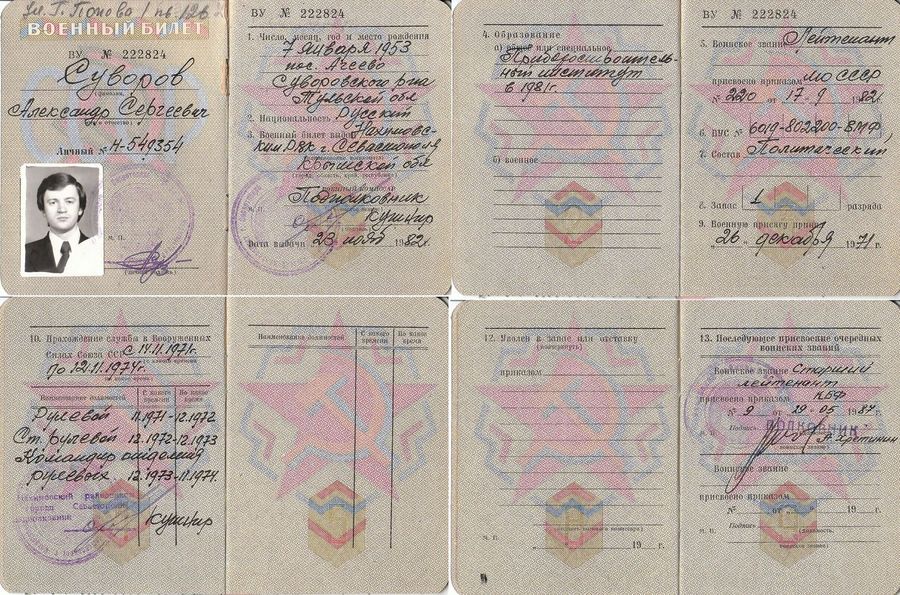 ул. Г. Попова
ВОЕННЫЙ БИЛЕТ
ВУ № 222824
Суворов
(фамилия,
Александр Сергеевич
и отчество)
Личный № Н-549354
М. П.
ВУ № 222824
1. Число, месяц, год и место рождения
7 января 1953
пос. Агеево
Суворовского р-на
Тульской обл
2. Национальность Русский
3. Военный билет выдан Нахимовс-
ким РВК г. Севастополя
Крымской обл
(город, область, край, республика)
Подполковник
Кушнир
Дата выдачи „23 " 1982г.
4. Образование
а) общее или специальное
Приборостроитель-
ный институт
в 1981г.
б) военное
ВУ № 222824
5. Воинское звание Лейтенант
присвоено приказом МО СССР
№ 220 от 17.9 1982г.
6. ВУС № 6019-802200-ВМФ
7. Состав Политический
8. Запас 1 разряда
9. Военную присягу принял
„26 " декабря 1971 г.
10. Прохождение службы в Вооруженных
Силах Союза ССР с 14.11.1971г.
(с какого времени
по 12.11.1974г.
по какое время)
Наименование должностей С какого времени По какое время
Рулевой 11.1971-12.1972
Ст. рулевой 12.1972-12.1973
Командир отделения
рулевых. 12.1973-11.1974.
Кушнир
Наименование должностей С какого времени По какое время
12. Уволен в запас или отставку
(подчеркнуть)
приказом
М. П.
" 19 г.
13. Последующее присвоение очередных
воинских званий
Воинское звание Старший
лейтенант
присвоено приказом КБФ
№ 9 от 29.05 1987г.
Подпись ПОЛКОВНИК
М. П.
Воинское звание
присвоено приказом
№ от „ " 19 г.
Подпись
М. П. (должность,
воинское звание)